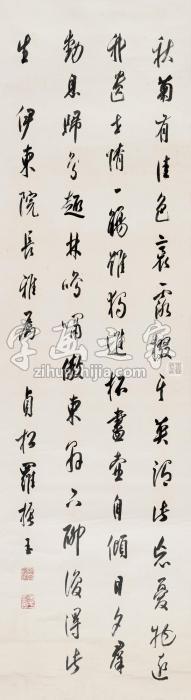 秋菊有佳色裛露掇其英汎此忘憂物遠
我遺世情一觴雖獨進杯盡壺自傾日夕羣
動息歸鳥趨林鳴嘯傲東軒下聊復得此
生 伊東院長雅屬 貞松羅振玉
字畫之家
zihuazhijia.com